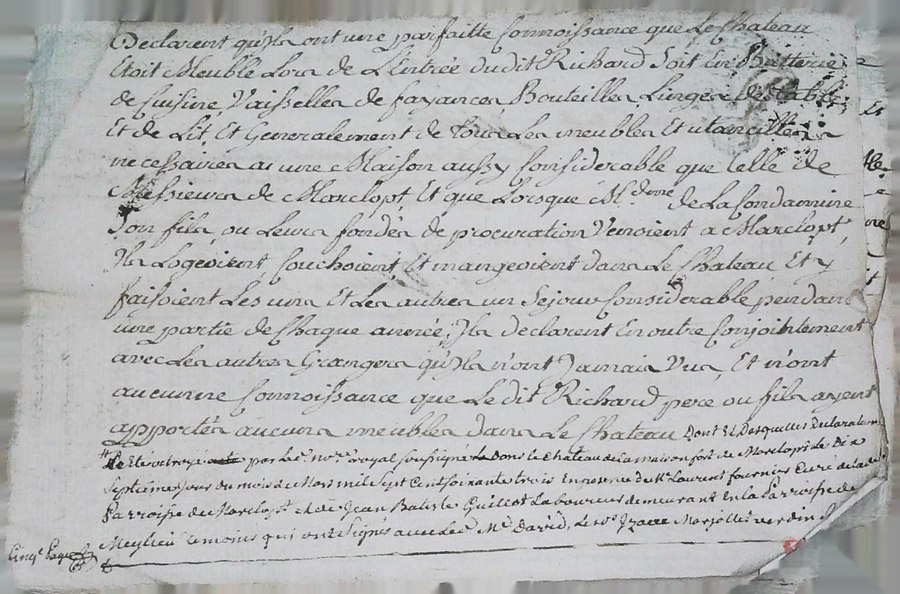 Declarent qu'ils ont une parfaitte Connoissance que Le Chateau
Etoit Meublé Lors de L'Entrée dudit Richard Soit En Batterie
de Cuisine, Vaisselles de fayances Bouteilles, Linges de table
Et de Lit, Et Generalement de Tous Les meubles Et utancilles
necessaires a une Maison aussy Considerable que Celle de
Messieurs de Marclopt, Et que Lorsque Md. de La Condamine
Son fils, ou Leurs fondés de procuration Venoient a Marclopt,
Ils Logeoient, Couchoient Et mangeoient dans Le Chateau, Et y
faisoient Les uns Et Les autres un Sejour Considerable pendant
une partie de Chaque année, Ils declarent En outre Conjointement
avec Les autres Grangers qu'ils n'ont Jamais Vus, Et n'ont
aucunne Connoissance que Ledit Richard pere ou fils ayent
apportés aucuns meubles dans Le Chateau Dont Et Desquelles Declarations
octroyé par Le nore royal soussigné Dans le Chateau de la maison fort de Marclopt Le Dix
septieme jour du mois de Mars mil sept Cent soixante trois En presence de Mre Laurent fournier Curé de la
Parroisse de Marclopt et de Jean Batiste Guillot Laboureur demeurant En la Parroisse de
Meylieu temoins qui ont signés avec Les Mr David, le Sr Marjollet verdin
Cinqe Page